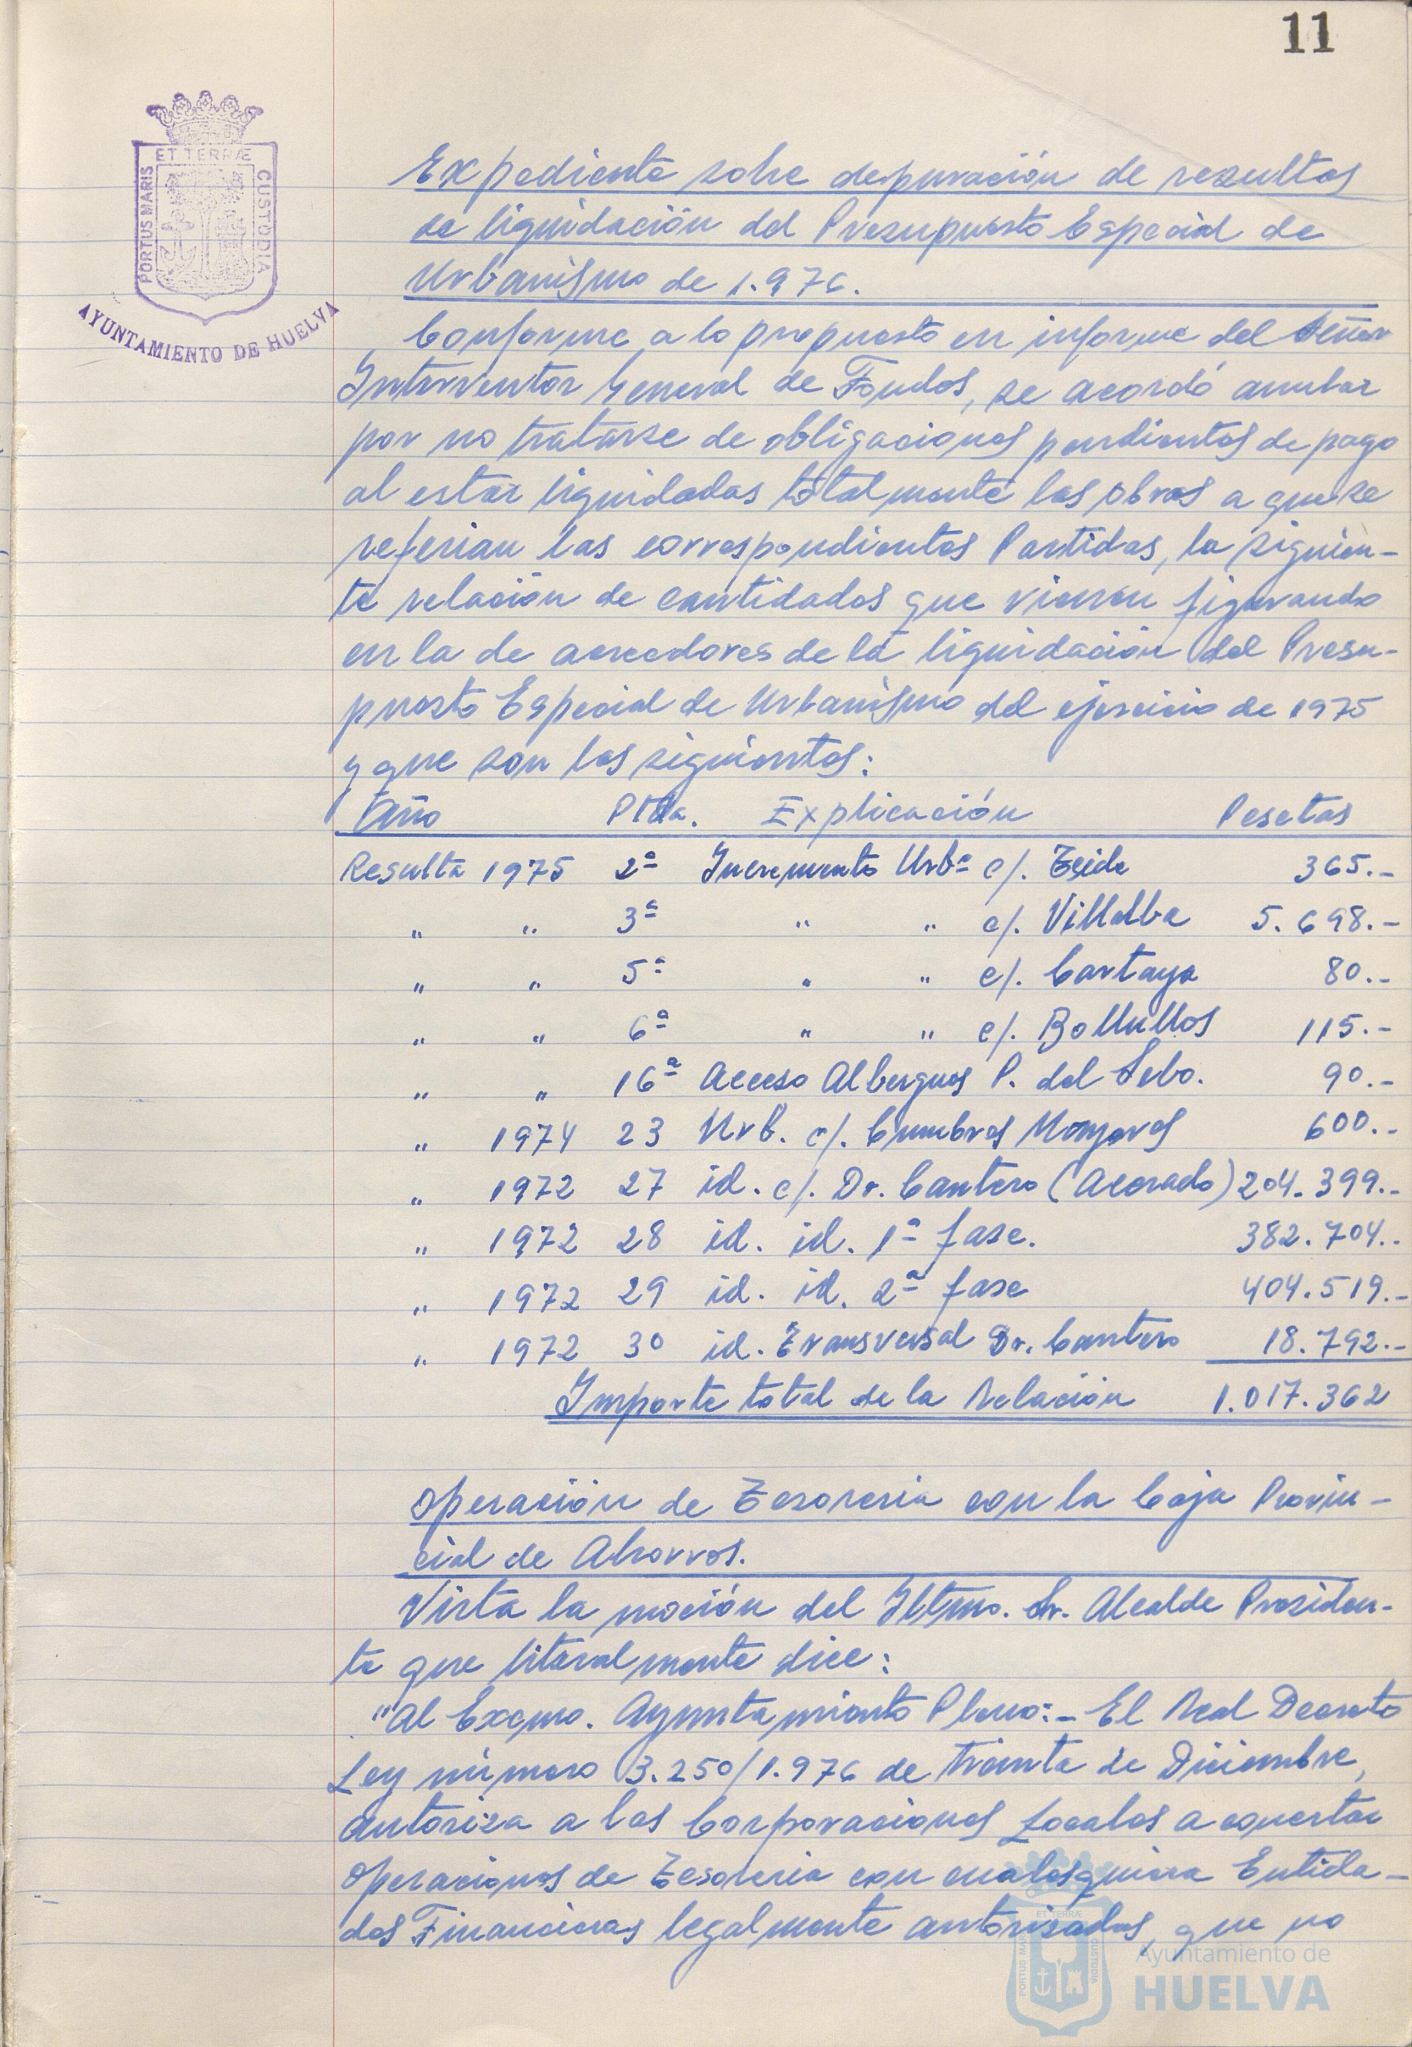 11
ET TERRÆ
PORTUS MARIS
CUSTODIA
AYUNTAMIENTO DE HUELVA
Expediente sobre depuración de resultas
de liquidación del Presupuesto Especial de
Urbanismo de 1.976.
Conforme a lo propuesto en informe del Señor
Interventor General de Fondos, se acordó anular
por no tratarse de obligaciones pendientes de pago
al estar liquidadas totalmente las obras a que se
referian las correspondientes Partidas, la siguien-
te relación de cantidades que vienen figurando
en la de acreedores de la liquidación del Presu-
puesto Especial de Urbanismo del ejercicio de 1975
y que son las siguientes:
Año Ptda. Explicación Pesetas
Resulta 1975 2ª Incremento Urbª c/. Teide 365.-
" " 3ª " " c/. Villalba 5.698.-
" " 5ª " " c/. Cartaya 80.-
" " 6ª " " c/. Bollullos 115.-
" " 16ª Acceso Albergues P. del Sebo. 90.-
" 1974 23 Urb. c/. Cumbres Mayores 600.-
" 1972 27 id. c/. Dr. Cantero (Acerado) 204.399.-
" 1972 28 id. id. 1ª fase. 382.704.-
" 1972 29 id. id. 2ª fase 404.519.-
" 1972 30 id. Transversal Dr. Cantero 18.792.-
Importe total de la Relación 1.017.362
Operación de Tesoreria con la Caja Provin-
cial de Ahorros.
Vista la moción del Iltmo. Sr. Alcalde Presiden-
te que literalmente dice:
"Al Excmo. Ayuntamiento Pleno:- El Real Decreto
Ley número 3.250/1.976 de treinta de Diciembre,
autoriza a las Corporaciones Locales a concertar
operaciones de Tesoreria con cualesquiera Entida-
des Financieras legalmente autorizadas, que no
ET TERRÆ
PORTUS MARIS
CUSTODIA
Ayuntamiento de
HUELVA